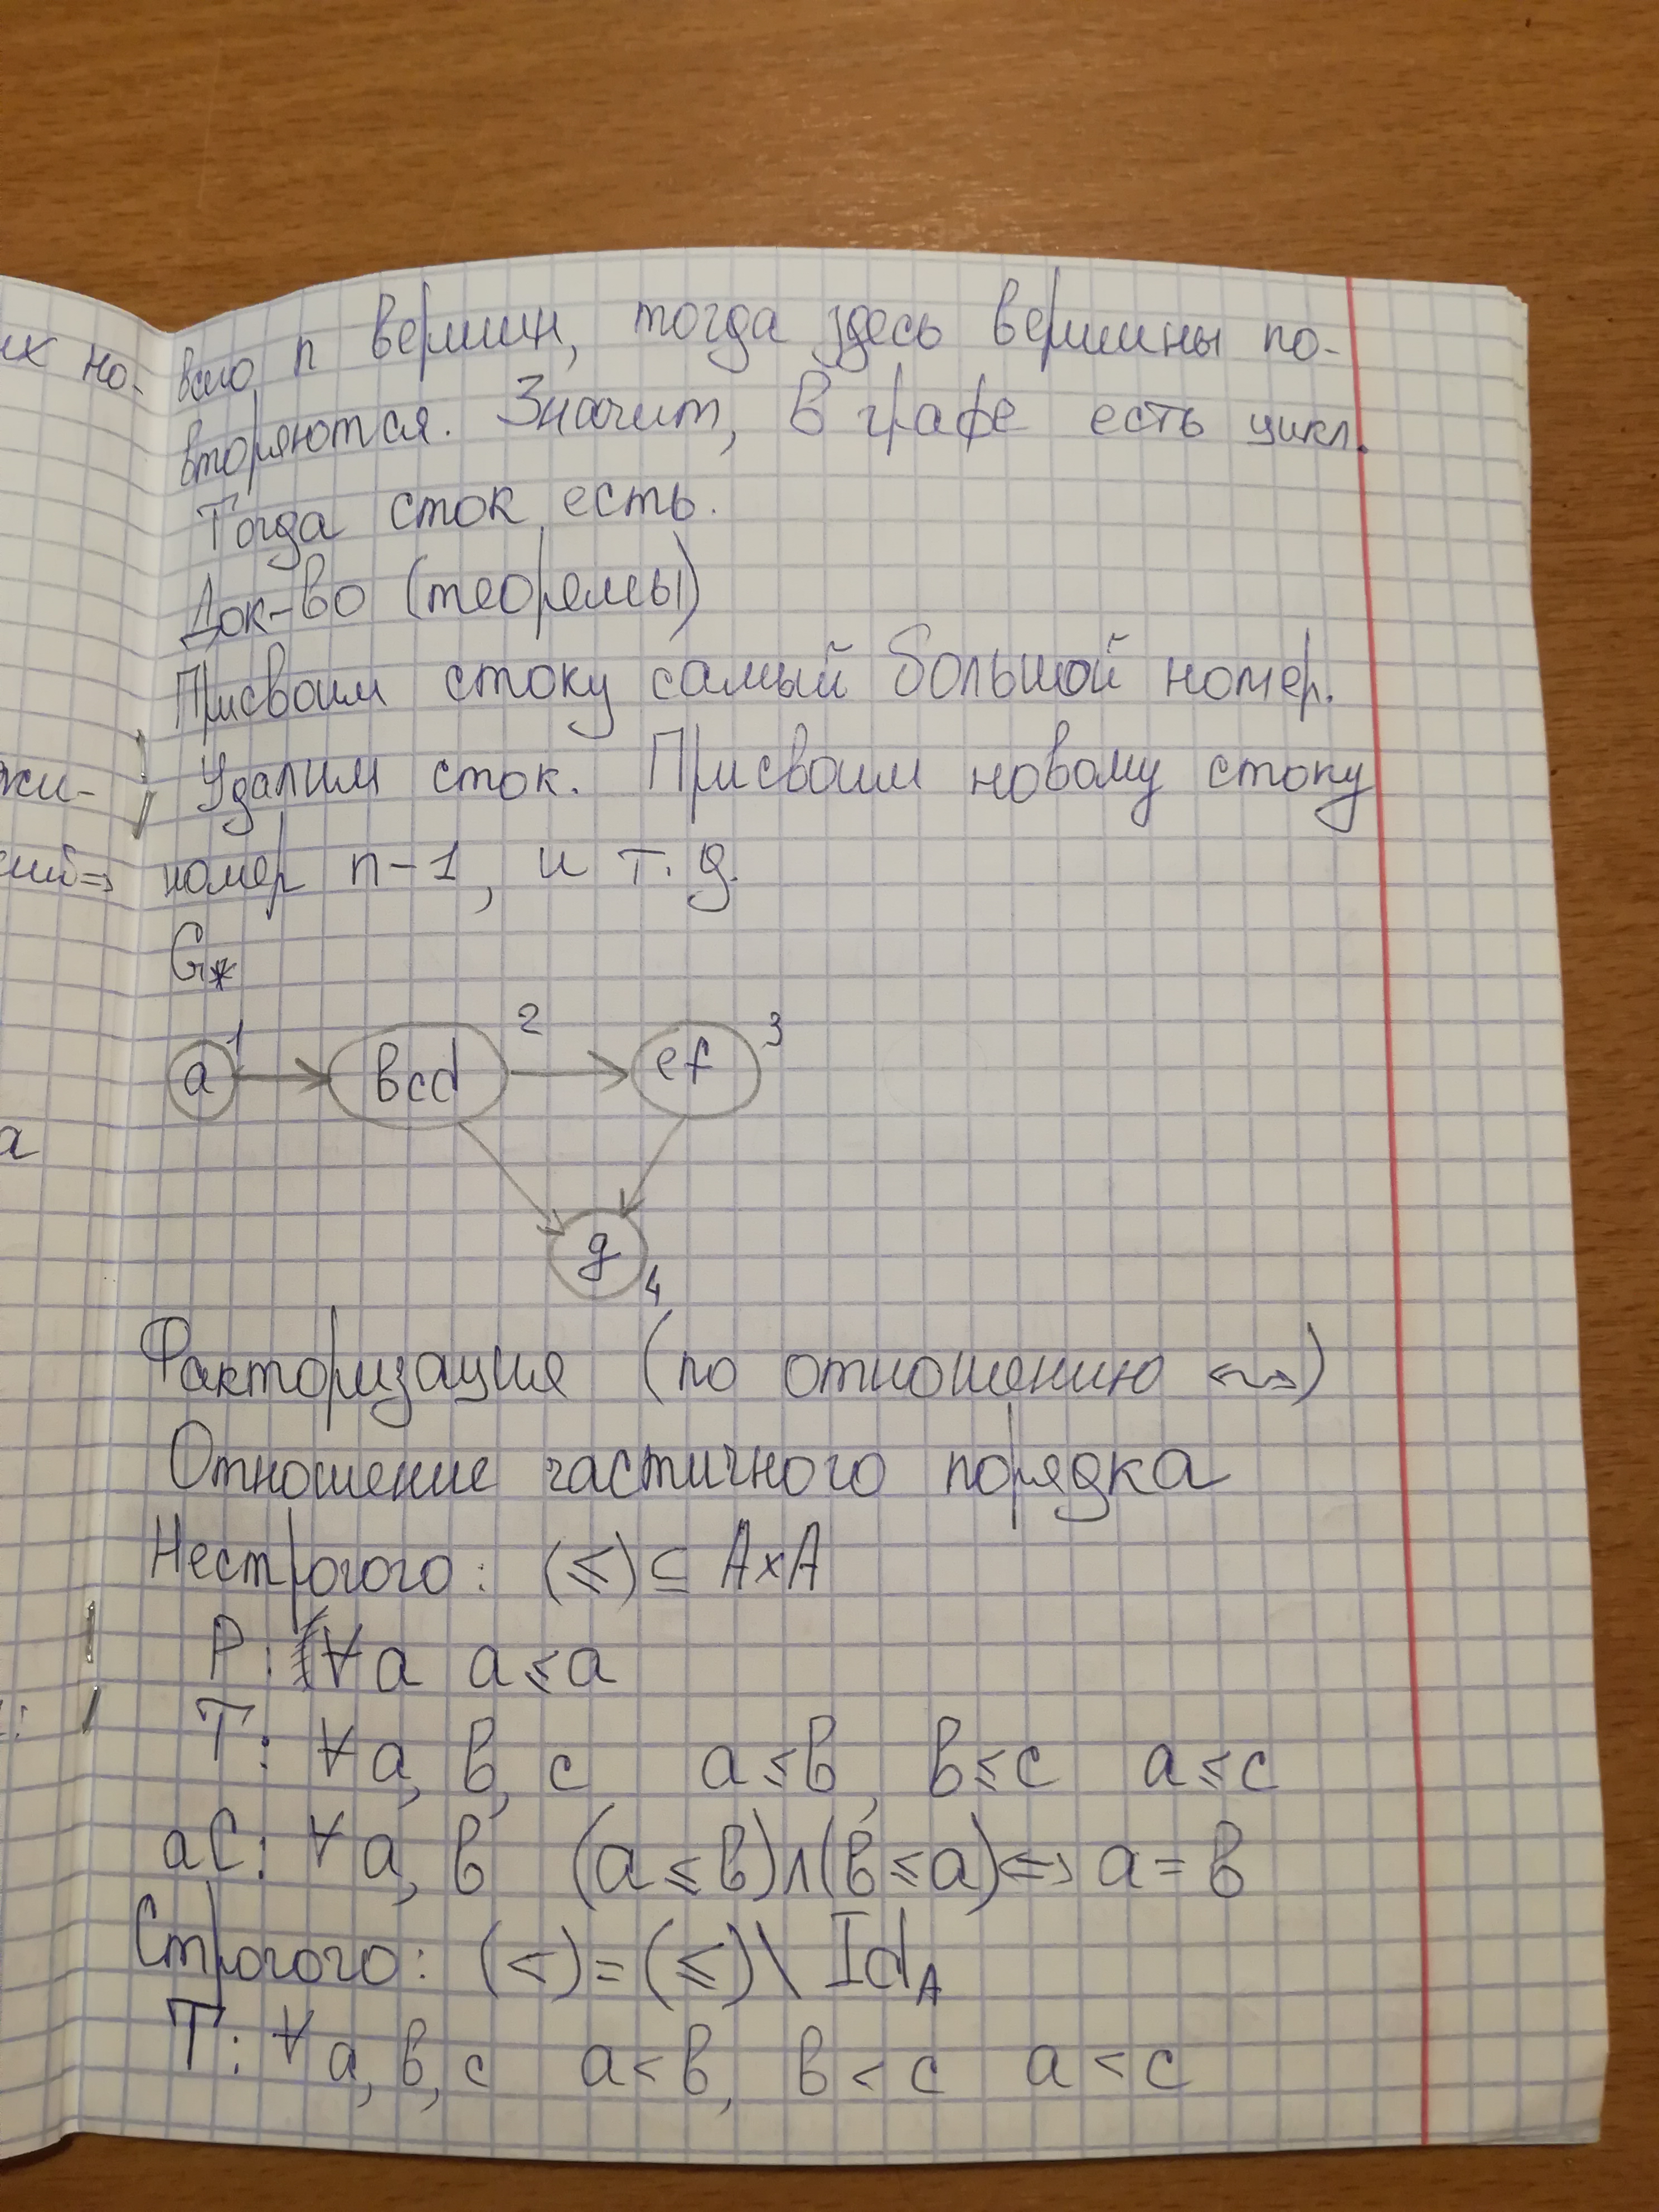 их но-
всего n вершин, тогда здесь вершины по-
вторяются. Значит, в графе есть цикл.
Тогда сток есть.
Док-во (теоремы)
Присвоим стоку самый большой номер.
жи-
Удалим сток. Присвоим новому стоку
номер n-1, и т. д.
G*
a 1 bcd 2 ef 3
а
g 4
Факторизация (по отношению ↭)
Отношение частичного порядка
Нестрогого: (⩽) ⊆ A×A
Р: ∀a a⩽a
Т: ∀a, b, c a⩽b, b⩽c a⩽c
аС: ∀a, b (a⩽b)∧(b⩽a)⇔ a=b
Строгого: (<)=(⩽)\ Id_A
Т: ∀a, b, c a<b, b<c a<c